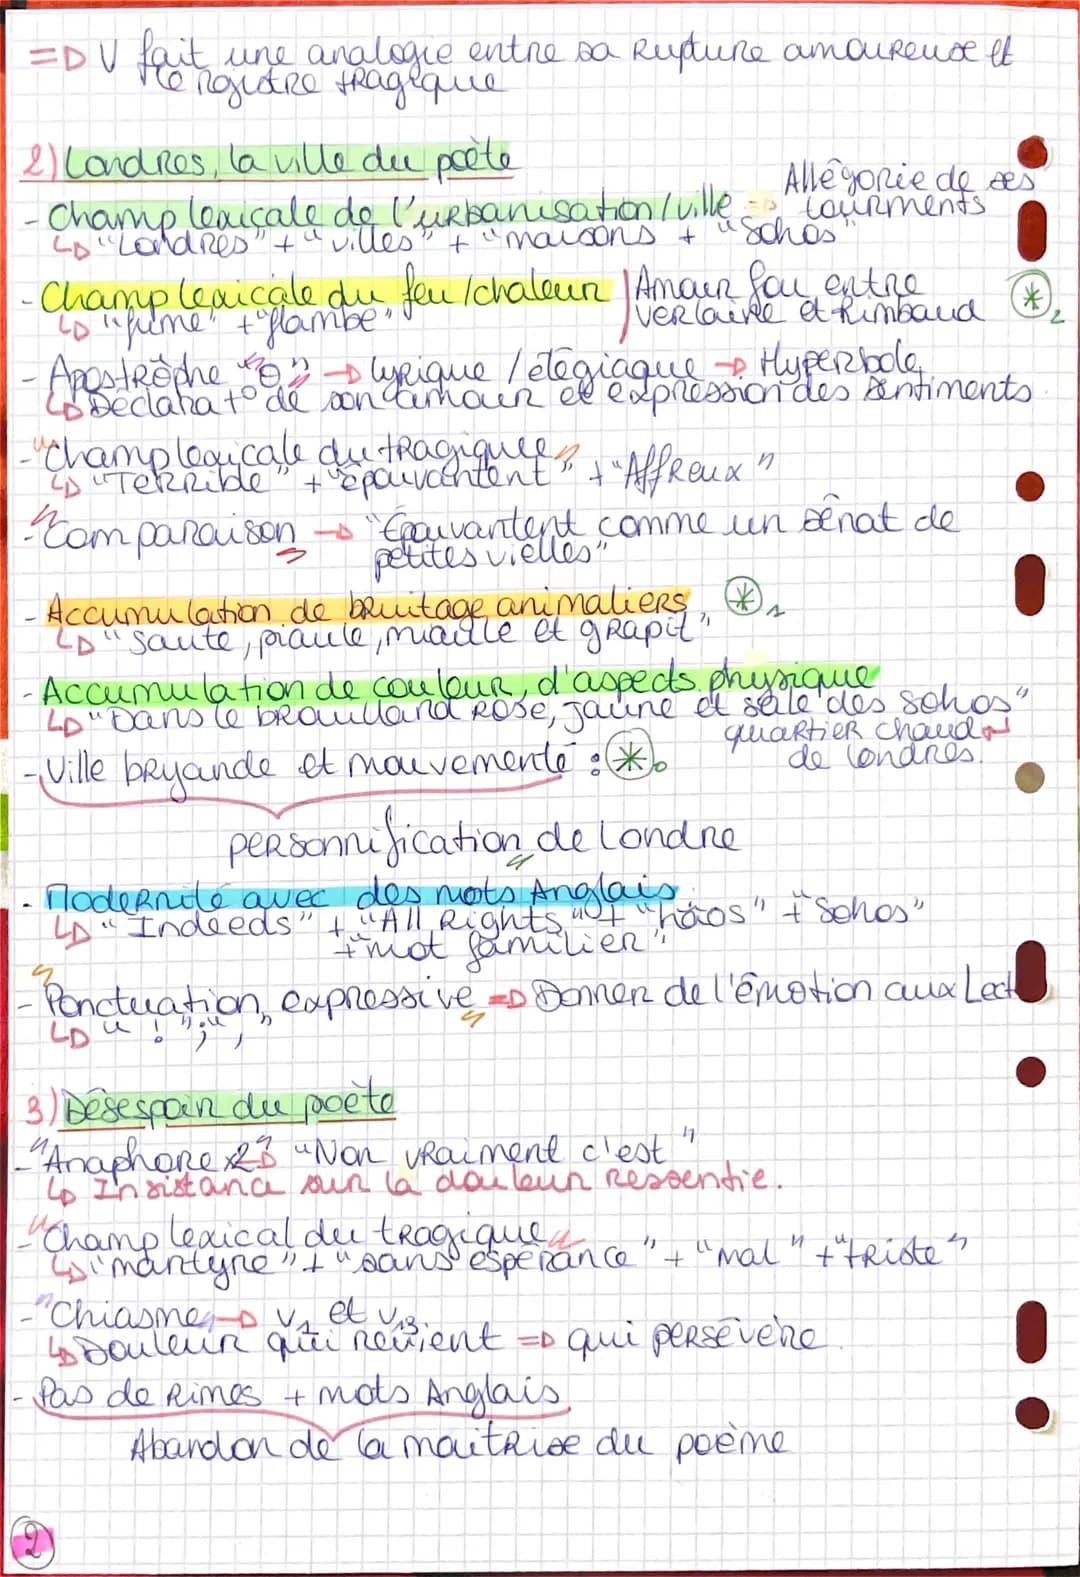 =D V fait une analogie entre sa Rupture amoureuse et
le registre tragique
2) Londres, la ville du poète
Allégorie de ses
- Champ lexicale de l'urbanisation/ville => tourments
↳ "Londres" + "villes" + "maisons + "Sohos"
- Champ lexicale du feu/chaleur | Amour fou entre
↳ "fume" + "flambe" Verlaine et Rimbaud *2
- Apostrophe "ô" → lyrique / élégiaque → Hyperbole
↳ Déclarat° de son amour et expression des sentiments.
- "Champ lexicale du tragique"
↳ "Terrible" + "épouvantent" + "Affreux"
- "Comparaison → "Épouvantent comme un sénat de
petites vielles"
- Accumulation de bruitage animaliers *1
↳ "Saute, piaule, miaule et grapit"
- Accumulation de couleur, d'aspects physique
↳ "Dans le brouillard rose, jaune et sale des sohos"
quartier chaud
- Ville bryande et mouvementé : *0 de londres.
personnification de Londre
- Modernité avec des mots Anglais
↳ "Indeeds" + "All Rights" + "hâos" + "Sohos"
+ "mot familier"
- Ponctuation expressive => Donner de l'émotion aux Lect
↳ " ! " ; " , "
3) Désespoir du poète
- "Anaphore x2" "Non vraiment c'est"
↳ Insistance sur la douleur ressentie.
- "Champ lexical du tragique"
↳ "martyre" + "sans espérance" + "mal" + "triste"
- "Chiasme → V1 et V13.
↳ Douleur qui revient => qui persévère.
- Pas de Rimes + mots Anglais
Abandon de la maitrise du poème
2